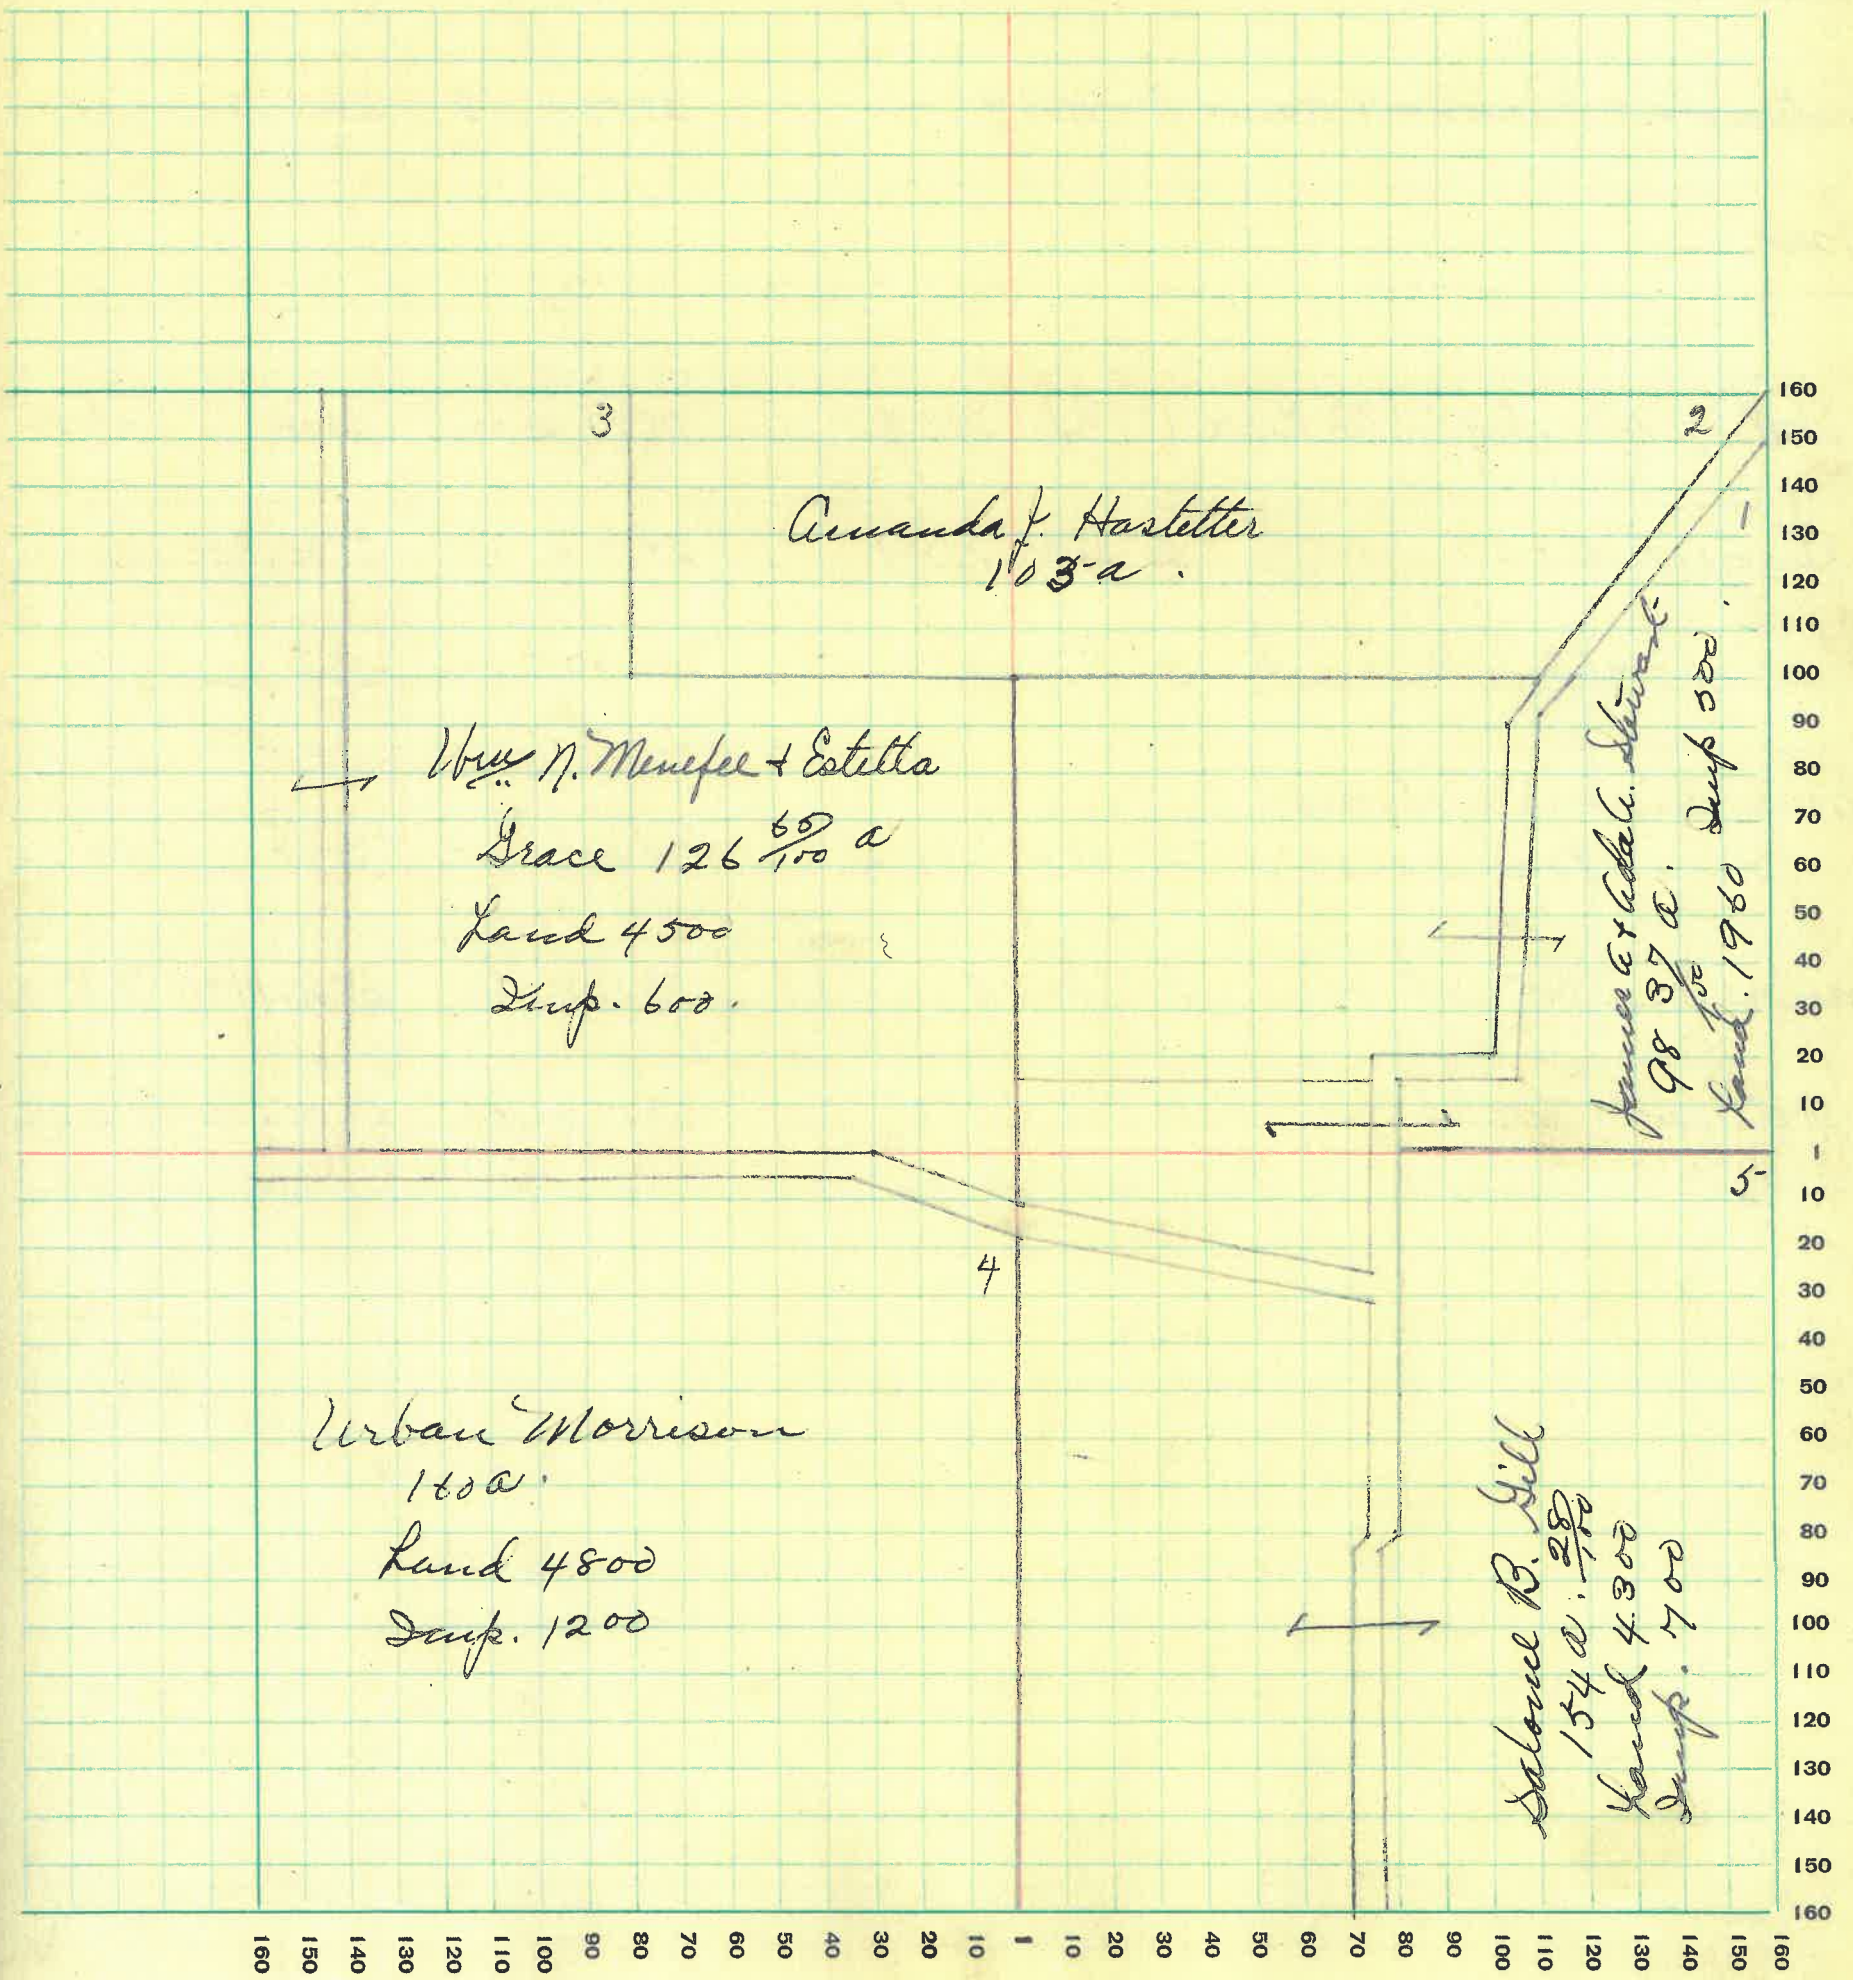 3
2
Amanda J. Hostetter
103 a.
1
Wm N. Menefee + Estella
Grace 126 60/100 a
Land 4500
Imp. 600.
James A + Ada A. Stewart
98 37/100 a.
Land. 1960 Imp 500.
4
5
Urban Morrison
160 a.
Land 4800
Imp. 1200
Salome B. Gill
154 a. 28/100
Land 4300
Imp. 700
160
150
140
130
120
110
100
90
80
70
60
50
40
30
20
10
1
10
20
30
40
50
60
70
80
90
100
110
120
130
140
150
160
160 150 140 130 120 110 100 90 80 70 60 50 40 30 20 10 1 10 20 30 40 50 60 70 80 90 100 110 120 130 140 150 160